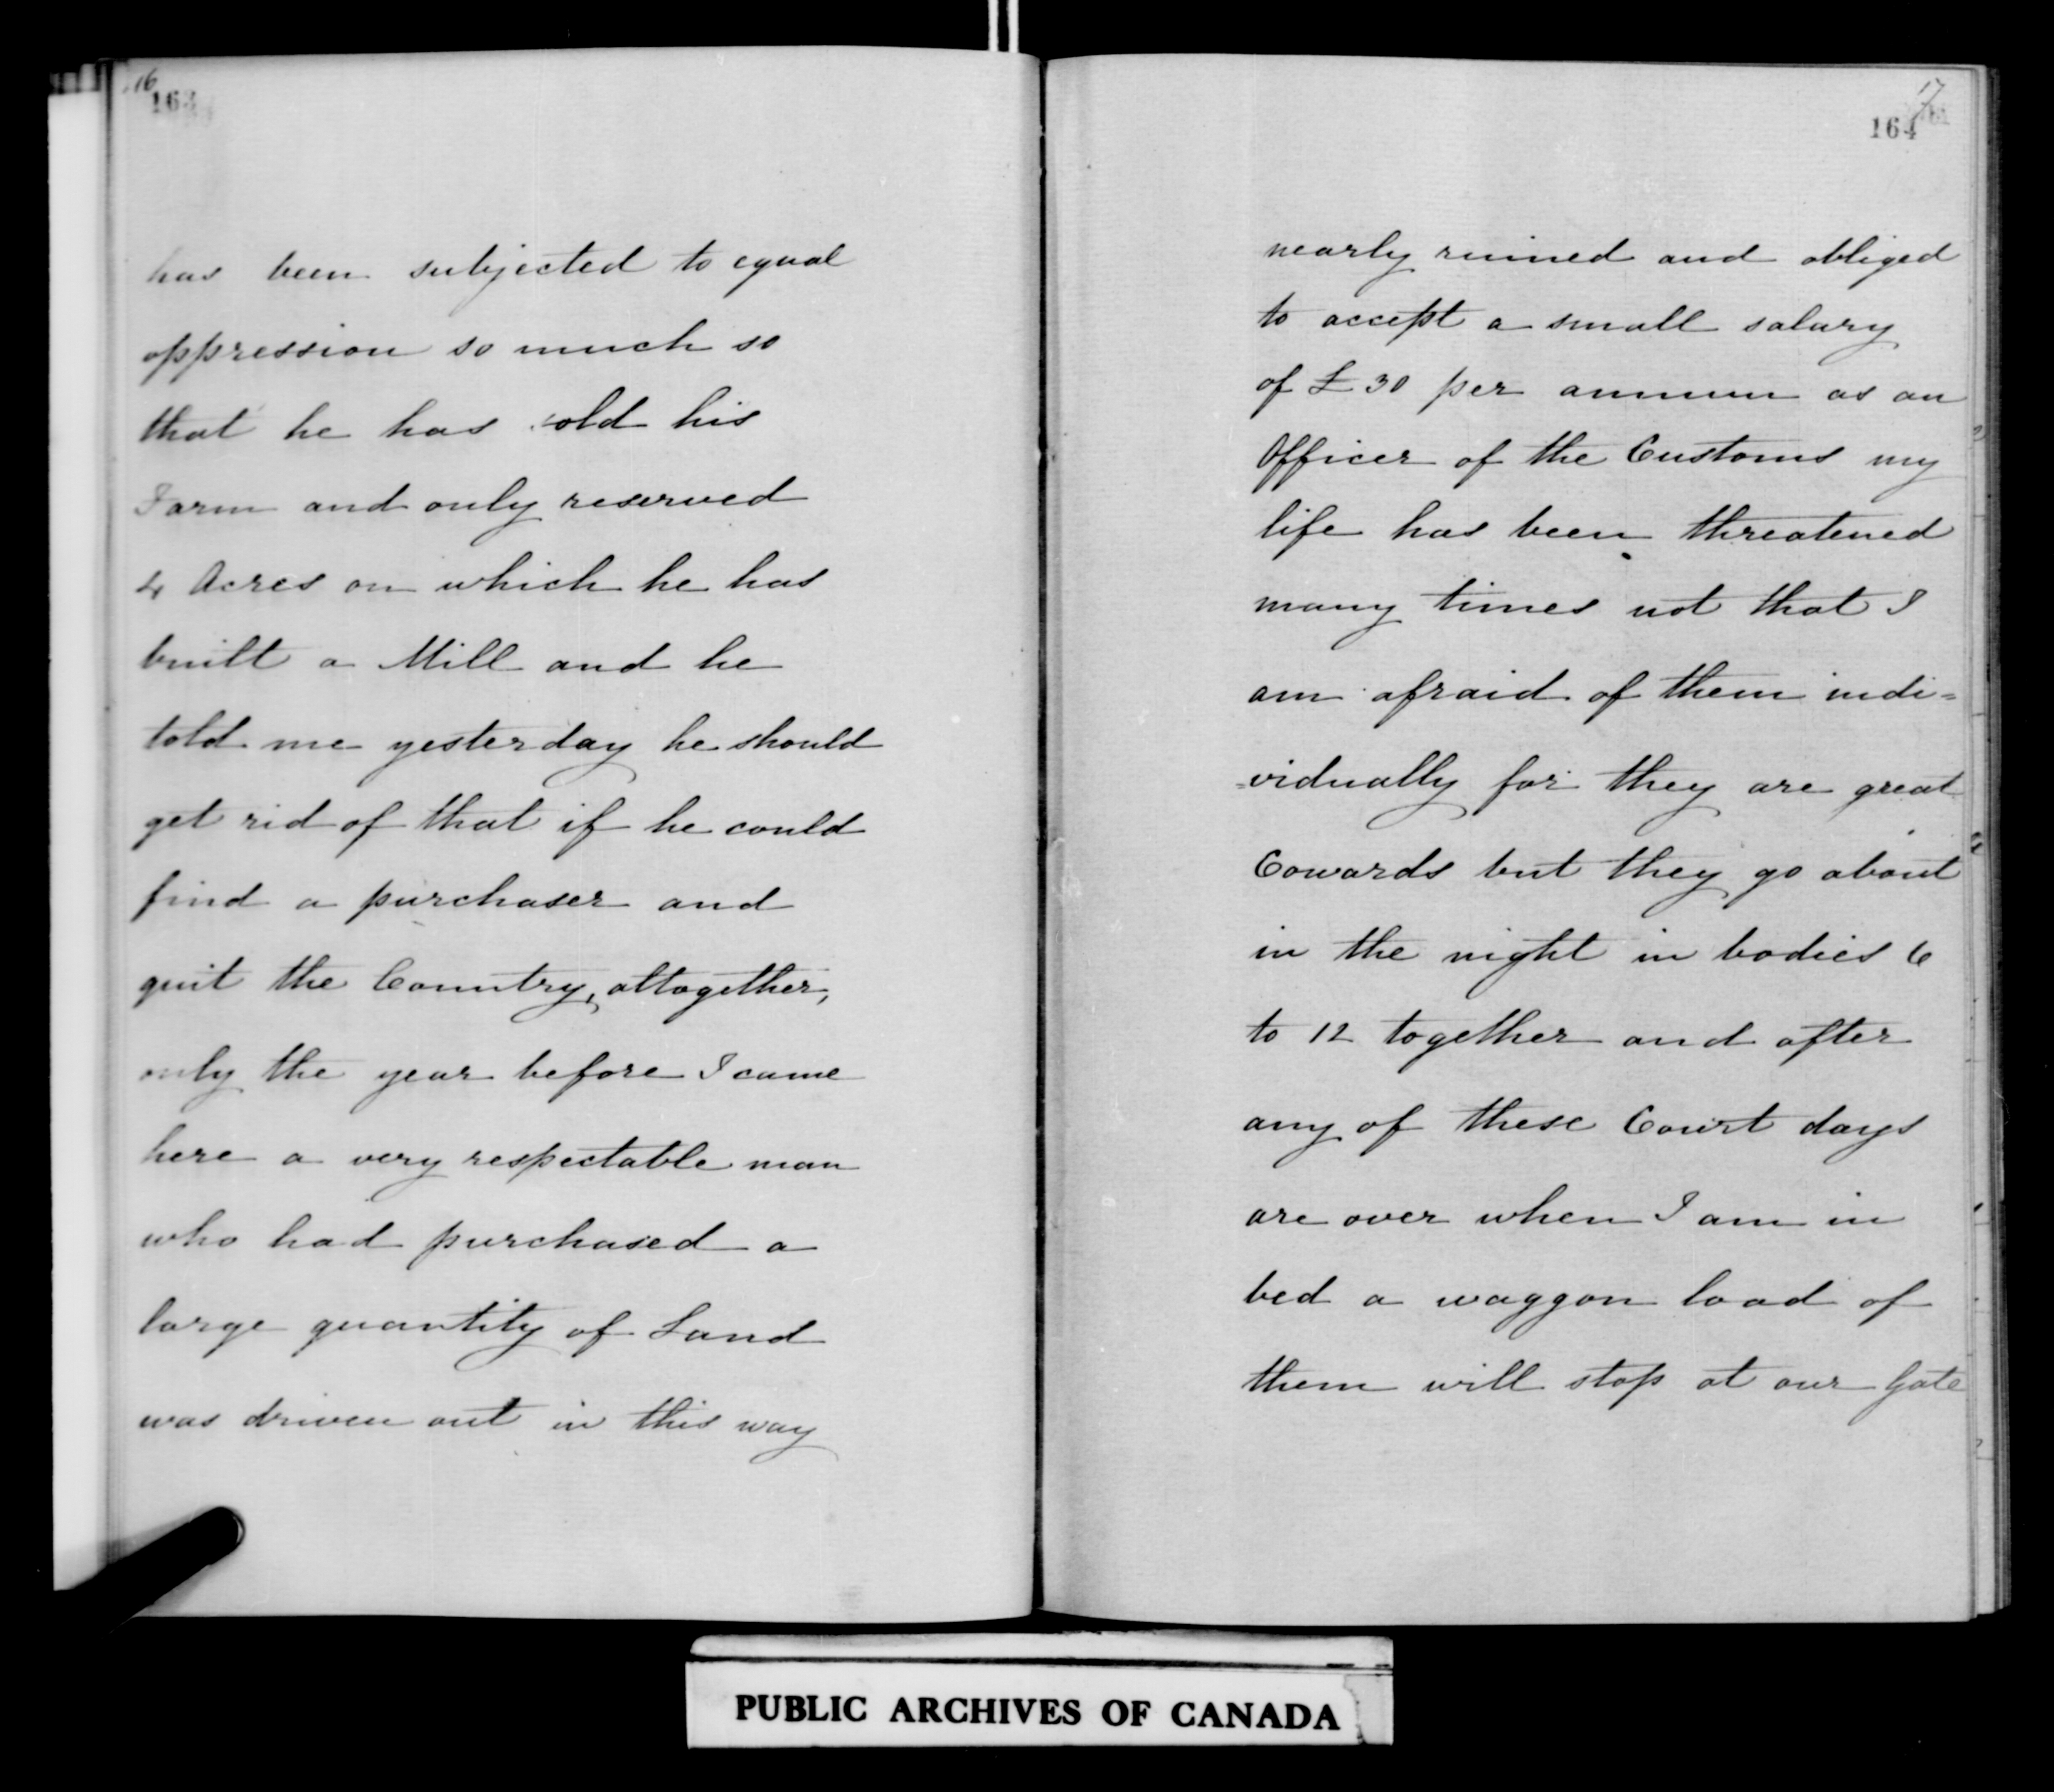 16
163
has been subjected to equal
oppression so much so
that he has sold his
Farm and only reserved
4 Acres on which he has
built a Mill and he
told me yesterday he should
get rid of that if he could
find a purchaser and
quit the Country, altogether,
only the year before I came
here a very respectable man
who had purchased a
large quantity of Land
was driven out in this way
17
164
nearly ruined and obliged
to accept a small salary
of £30 per annum as an
Officer of the Customs my
life has been threatened
many times not that I
am afraid of them indi=
=vidually for they are great
Cowards but they go about
in the night in bodies 6
to 12 together and after
any of these Court days
are over when I am in
bed a waggon load of
them will stop at our Gate
PUBLIC ARCHIVES OF CANADA